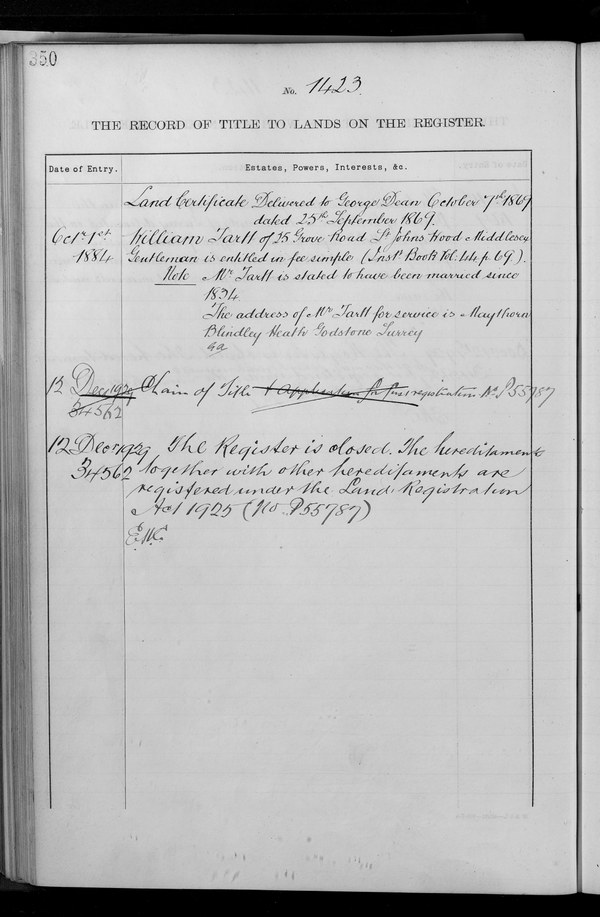 350
No. 1423.
THE RECORD OF TITLE TO LANDS ON THE REGISTER.
Date of Entry.
Estates, Powers, Interests, &c.
Land Certificate Delivered to George Dean October 7th 1869
dated 25th September 1869.
Octr 1st William Tartt of 25 Grove Road St Johns Wood Middlesex
1884 Gentleman is entitled in fee simple (Inst. Book Vol. 144 p. 69).
Note Mr Tartt is stated to have been married since
1834.
The address of Mr Tartt for service is Maythorn
Blindley Heath Godstone Surrey
12 Decr 1929 Chain of Title & application for first registration No P55787
34562
12 Decr 1929 The Register is closed. The hereditaments
34562 together with other hereditaments are
registered under the Land Registration
Act 1925 (No. P55787)